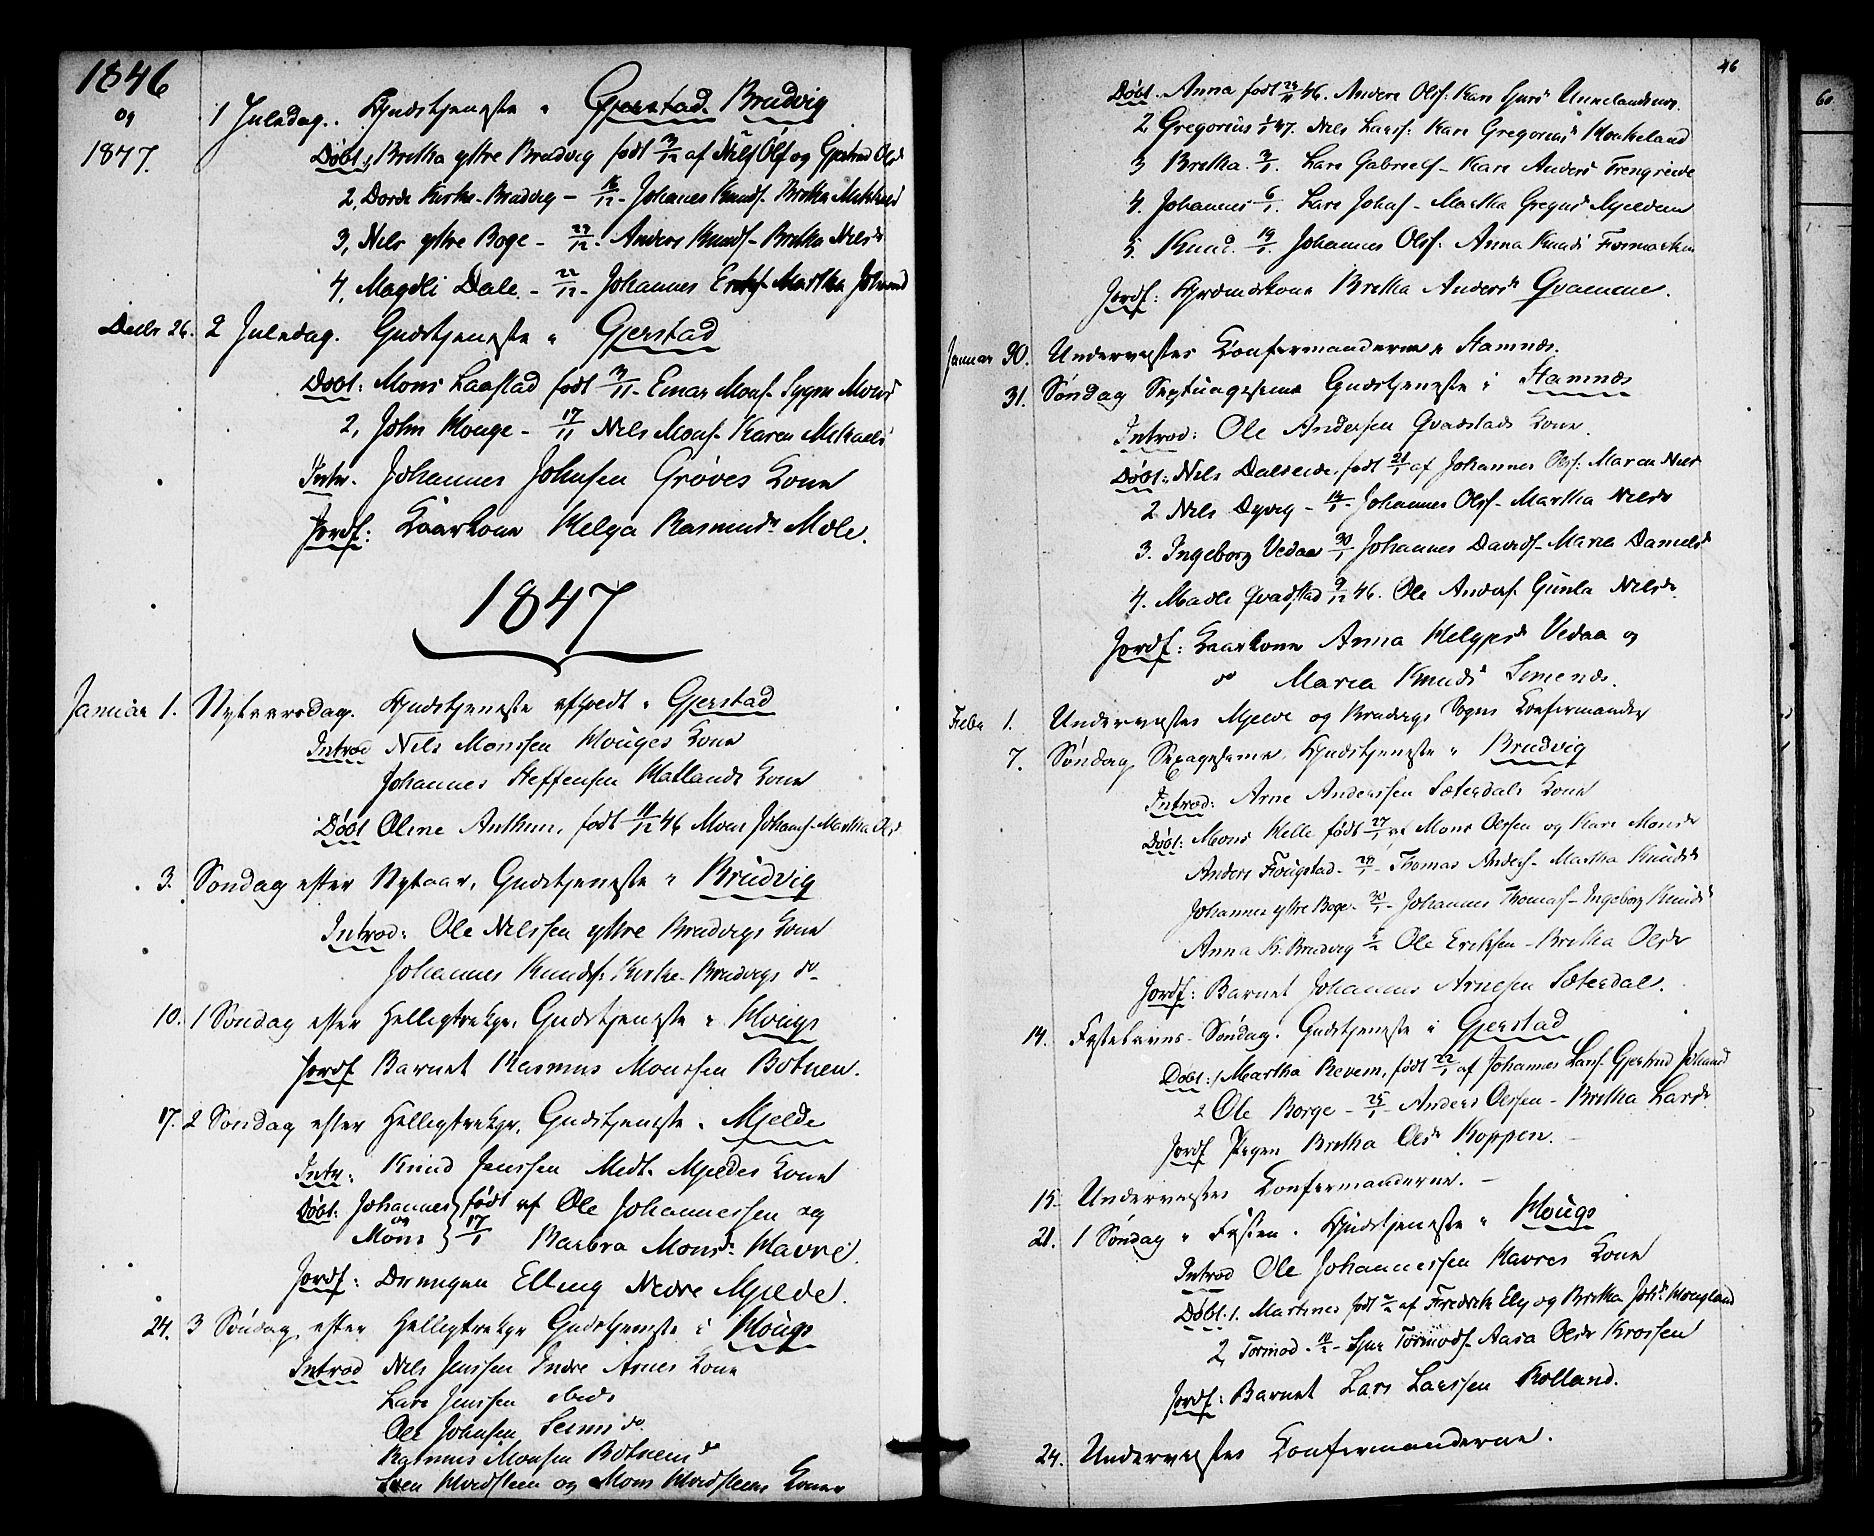 1846
og
1847.
1 Juledag. Gudstjeneste i Gjerstad Brudvig
Døbt: Brithe ytre Brudvig født 3/12 af Nils Ols. og Gjertrud Olsd
2, Dorde Kirke-Brudvig – 16/12 – Johannes Knuds. Britha Mikkelsd
3, Nils ytre Boge – 27/12 – Anders Knuds – Britha Nilsd
4, Magdli Dale – 22/12 – Johannes Ericks – Martha Johansd
Decbr 26. 2 Juledag. Gudstjeneste i Gjerstad
Døbt: Mons Laastad født 3/11 – Einar Mons. Sygni Monsd
2, John Houge – 17/11 Nils Mons. Karen Mikaelsd
Intr. Johannes Johnsen Grøves Kone
Jordf: Kaarkone Helga Rasmusd. Mæle.
1847
Januar 1. Nytaarsdag. Gudstjeneste afholdt i Gjerstad
Introd Nils Monssen Houges Kone
Johannes Steffensen Hatlands Kone
Døbt Oline Anthun, født 11/12 46 Mons Johans. Martha Olsd
3. Søndag efter Nytaar, Gudstjeneste i Brudvig
Introd: Ole Nilssen ytre Brudvigs Kone
Johannes Knuds. Kirke-Brudvigs do
10. 1 Søndag efter Helligtrekgr. Gudstjeneste i Hougs
Jordf Barnet Rasmus Monssen Botnen.
17. 2 Søndag efter Helligtrekgr. Gudstjeneste i Mjelde
Intr: Knud Jenssen Medt. Mjeldes Kone
Døbt. Johannes født af Ole Johannessen og
og
Mons 17/1 Barbra Monsd: Havre.
Jordf: Drengen Elling Nedre Mjelde.
24. 3 Søndag efter Helligtrekgr Gudstjeneste i Hougs
Introd Nils Jenssen Indre Arnes Kone
Lars Jenssen ibids
Ole Johnsen do
Rasmus Monsen Botnens do
Sven Hvidsteen og Mons Hvidsteens Koner
46
60
Døbt. Anna født 46. Anders Ols. Kari
2 Gregorius 47. Nils Lars: Kari Gregorius.
3 Britha. 3/1. Lars Gabriels – Kari Anders
4. Johannes 6/1. Lars Johas – Martha Mjeldem
5. Knud. 19/1. Johannes Ols. Anna Knuds
Jordf: Britha Andersd Qvamme.
Januar 30. Undervistes Confirmanderne i Stamnæs.
31. Søndag Septuagesima Gudstjeneste i Stamnæs
Introd: Ole Andersen Qvadstads Kone.
Døbt: Nils Dalseide, født 21/1 af Johannes Ols: Maren Nilsd
2 Nils Dyvig – 14/1 – Johannes Ols – Martha Nilsd
3. Ingeborg Vedaa 30/1 Johannes Davids – Maria Danielsd
4. Madle Qvadstad 9/12 46. Ole Anders. Gunla Nilsd.
Jordf: Kaarkone Anna Helgesd Vedaa og
do Maria Knudsd Simenæs.
Febr 1. Undervistes Mjelde og Brudvigs Sogns Confirmander
7. Søndag Sexagesima. Gudstjeneste i Brudvig
Introd: Arne Anderssen Sæterdals Kone
Døbt: Mons Helle født 27/1 af Mons Olssen og Kari Monsd
Anders Fougstad – – Thomas Anders – Martha Knudsd
Johannes ytre Boge – 30/1 – Johannes Thomas – Ingeborg Knudsd
Anna K. Brudvig Ole Ericksen – Britha Olsd
Jordf: Barnet Johannes Arnesen Sæterdal.
14. Fastelavns-Søndag. Gudstjeneste i Gjerstad
Døbt: 1 Martha Revem, født 22/1 af Johannes Lars. Gjertrud Johansd
2 Ole Borge – 25/1 – Anders Olssen – Britha Larsd
Jordf Pigen Britha Olsd Koppen.
15. Undervistes Confirmanderne.
21. 1 Søndag i Fasten. Gudstjeneste i Hougs
Introd Ole Johannessen Havres Kone
Døbt: 1. Martines født af Fredrik Ely og Britha Johd. Hougland
2, Tormod – Tormods – Aasa Olsd Krossen
Jordf: Barnet Lars Larssen Rolland.
24. Undervistes Confirmanderne.